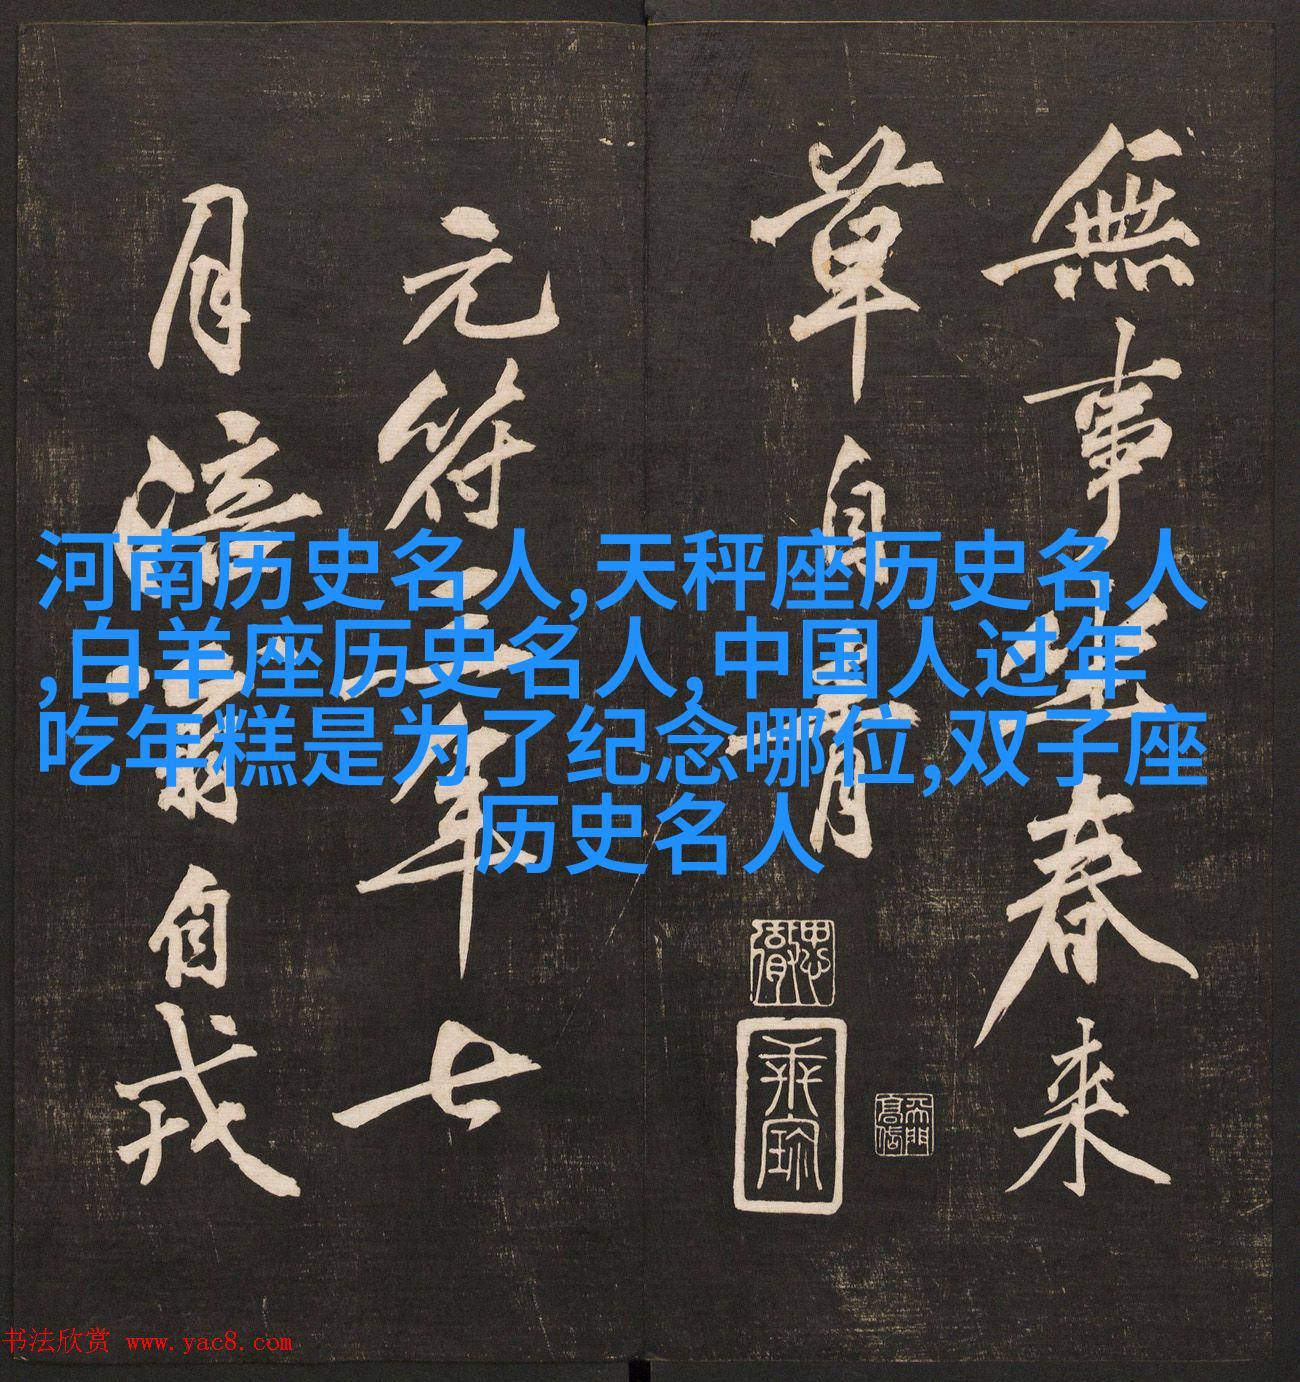 無事坐春来
草自青
元符三年七
月涪翁自戎
河南历史名人,天秤座历史名人
,白羊座历史名人,中国人过年
吃年糕是为了纪念哪位,双子座
历史名人
书法欣赏 www.yac8.com